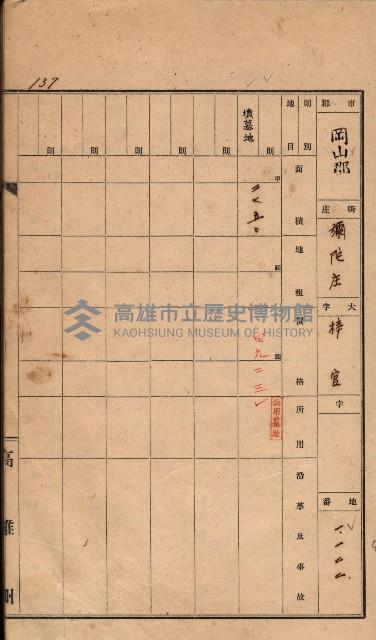 137
市郡 岡山郡
街庄 彌陀庄
大字 梓官
字
地番
則別
地目
面積
地租
價格
所用
沿革及事故
則 則 則 則 則 則 則
墳墓地
甲
圓
圓
公用墓地
高雄州
高雄市立歷史博物館
KAOHSIUNG MUSEUM OF HISTORY